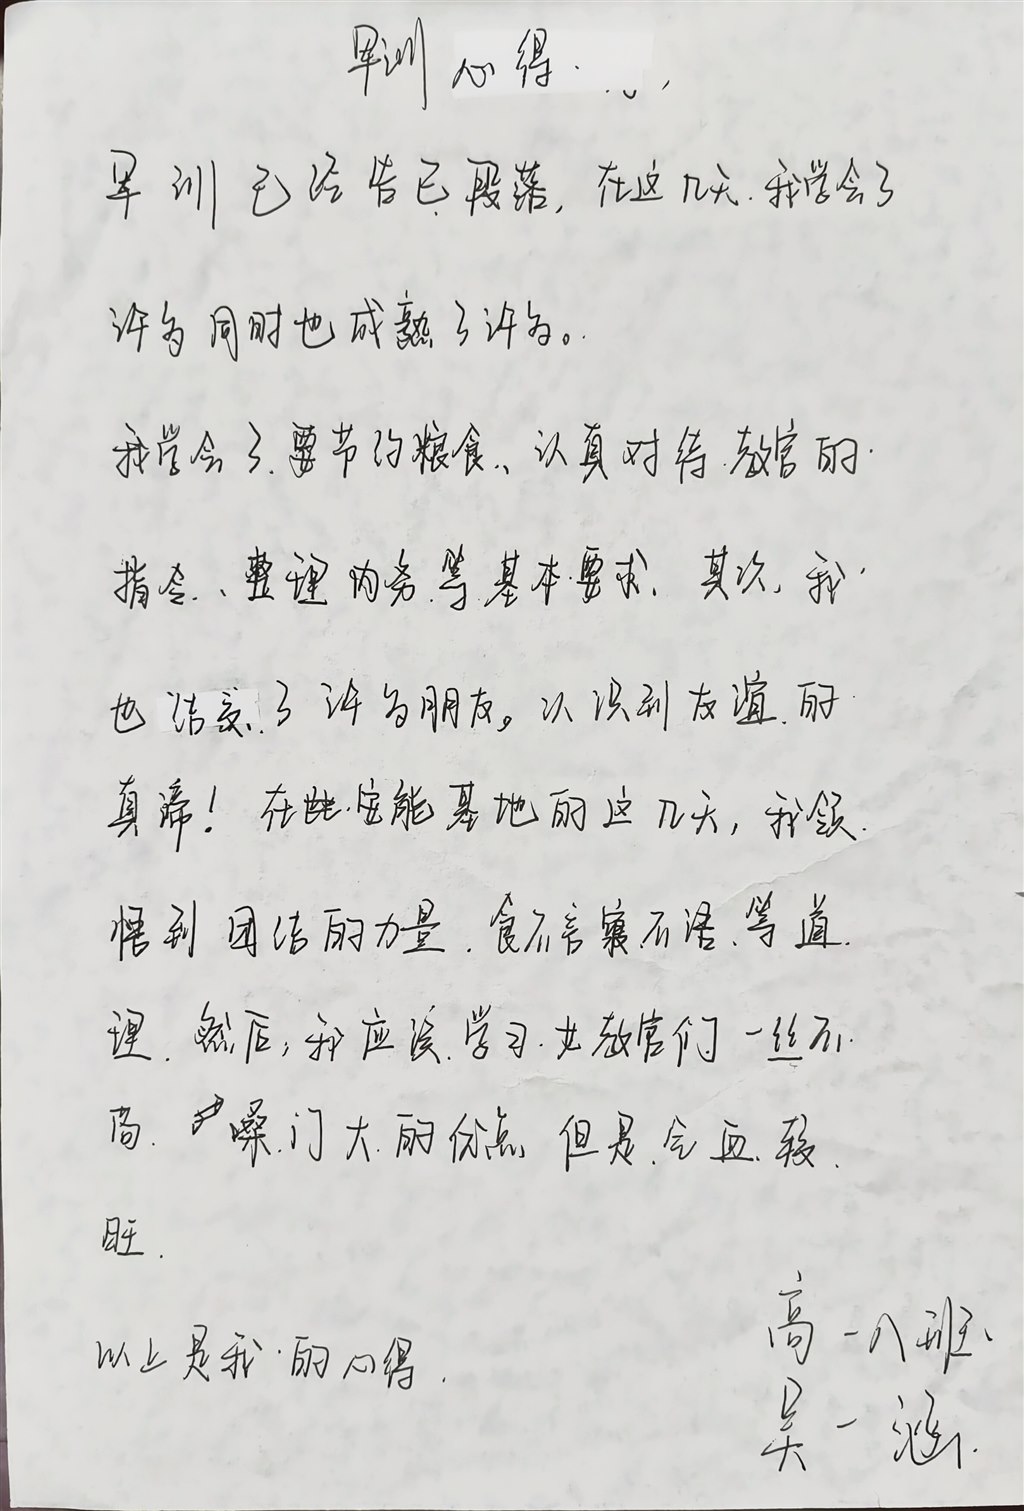 军训心得
军训已经告已段落，在这几天.我学会了
许多同时也成熟了许多。
我学会了.要节约粮食、认真对待教官的
指令、整理内务等基本要求、其次，我
也结交了许多朋友。认识到友谊的
真谛！在此.宝能基地的这几天，我领
悟到团结的力量.食不言寝不语、等道
理.然后，我应该.学习.女教官们一丝不
苟.嗓门大的优点 但是.气血.较.
旺.
以上是我的心得.
高一八班
吴一涵